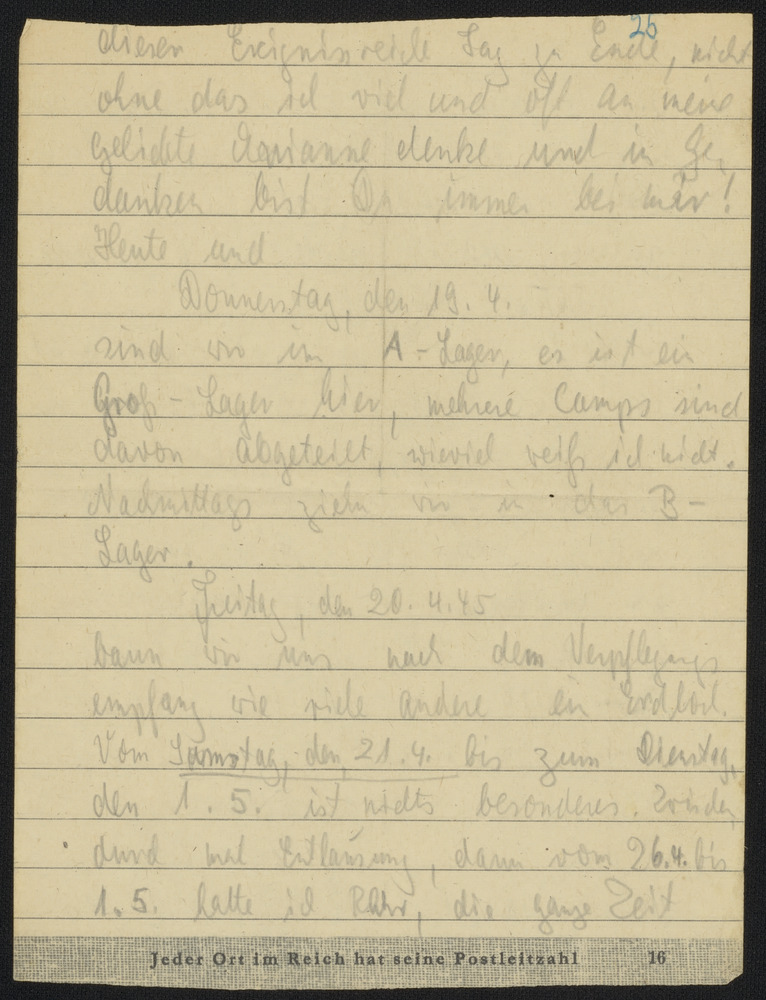 26
diesen Ereignisreiche Tag zu Ende, nicht
ohne das ich viel und oft an meine
geliebte Marianne denke und in Ge-
danken bist Du immer bei mir!
Heute und
Donnerstag, den 19. 4.
sind wir im A-Lager, es ist ein
Groß-Lager hier, mehrere Camps sind
davon abgeteilt, wieviel weiß ich nicht.
Nachmittags ziehn wir in das B-
Lager.
Freitag, den 20. 4. 45
baun wir uns nach dem Verpflegungs
empfang wie viele andere ein Erdloch.
Vom Samstag, den 21. 4. bis zum Dienstag,
den 1. 5. ist nichts besonderes. Zwischen
durch mal Entlausung, dann vom 26.4. bis
1. 5. hatte ich Ruhr, die ganze Zeit
Jeder Ort im Reich hat seine Postleitzahl 16